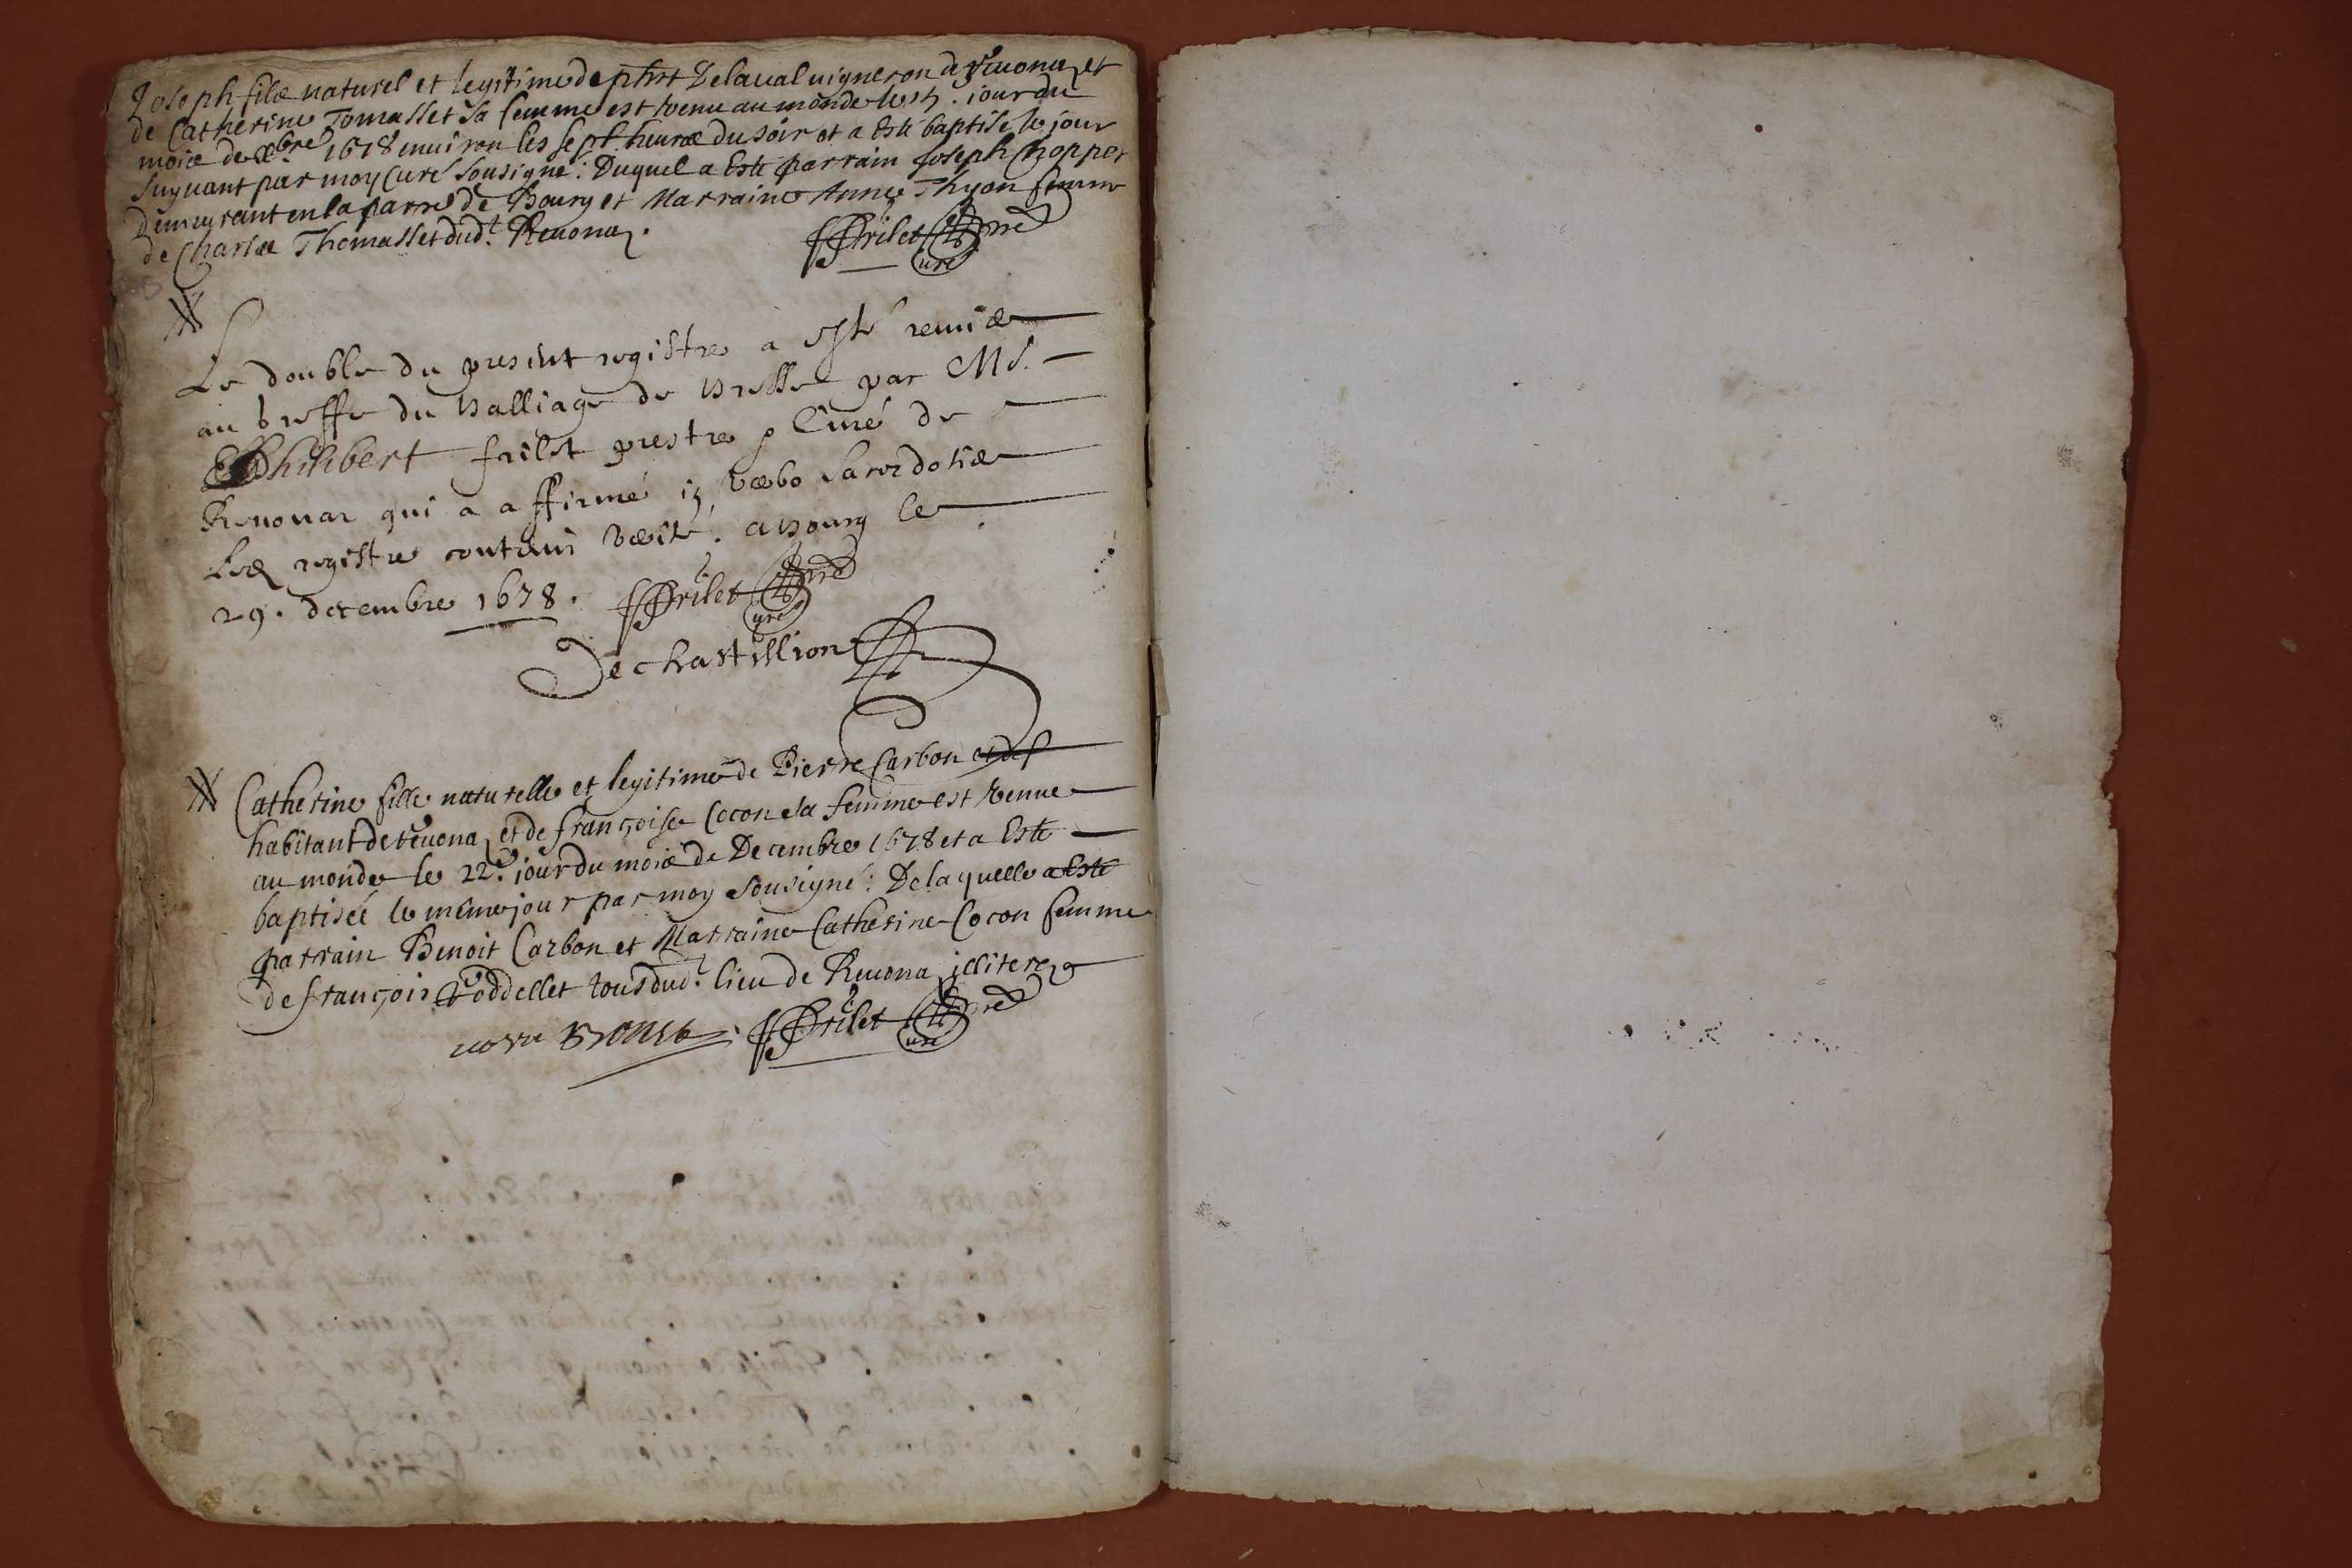 Joseph filz naturel et legitime de phirt Delaual uigneron de reuona et
de Catherine Tomasset sa femme est venu au monde le jour du
mois de xbre 1678 enuiron les sept heures du soir et a esté baptisé le jour
suyuant par moy Curé sousigné: Duquel a esté parrain Joseph Choppet
Demeurant en la parre de Bourg et Marraine Anne Thyon femme
de Charles Thomasset dudt Reuona.
Frilet pre
Curé
Le double du present registre a esté remis
au greffe du Balliage de Bresse par MS.
Philibert frilet prestre Curé de
Reuonar qui a affirmé in verbo sacerdotis
led registre contenir verité. a Bourg le
29. decembre 1678. Frilet pre
Curé
De chastillion
Catherine fille naturelle et legitime de Pierre Carbon
habitant de reuona, et de françoise Cocon sa femme est venue
au monde le 22e jour du mois de Decembre 1678 et a esté
baptisée le même jour par moy sousigné: De laquelle a esté
parrain Benoit Carbon et Marraine Catherine Cocon femme
de françois roddellet tous dudt lieu de Reuona, illiterez
Frilet pre
Curé